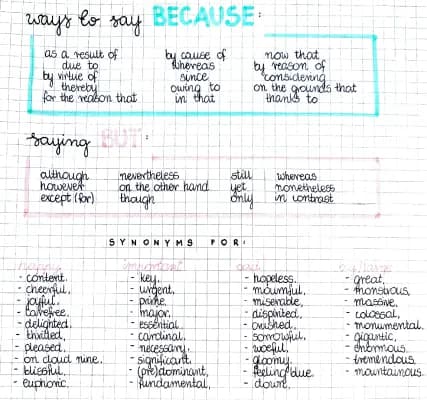 ways to say BECAUSE:
as a result of
due to
by virtue of
thereby
for the reason that
by cause of
whereas
since
owing to
in that
now that
by reason of
considering
on the grounds that
thanks to
saying BUT:
although
however
except (for)
nevertheless
on the other hand
though
still
yet
only
whereas
nonetheless
in contrast
SYNONYMS FOR:
happy
- content,
- cheerful,
- joyful,
- carefree,
- delighted,
- thrilled,
- pleased,
- on cloud nine,
- blissful,
- euphoric.
important
- key,
- urgent,
- prime,
- major,
- essential,
- cardinal,
- necessary,
- significant,
- (pre)dominant,
- fundamental,
sad
- hopeless,
- mournful,
- miserable,
- dispirited,
- crushed,
- sorrowful,
- woeful,
- gloomy,
- feeling blue
- down,
big/large
- great,
- monstrous,
- massive,
- colossal,
- monumental,
- gigantic,
- enormous,
- tremendous,
- mountainous.